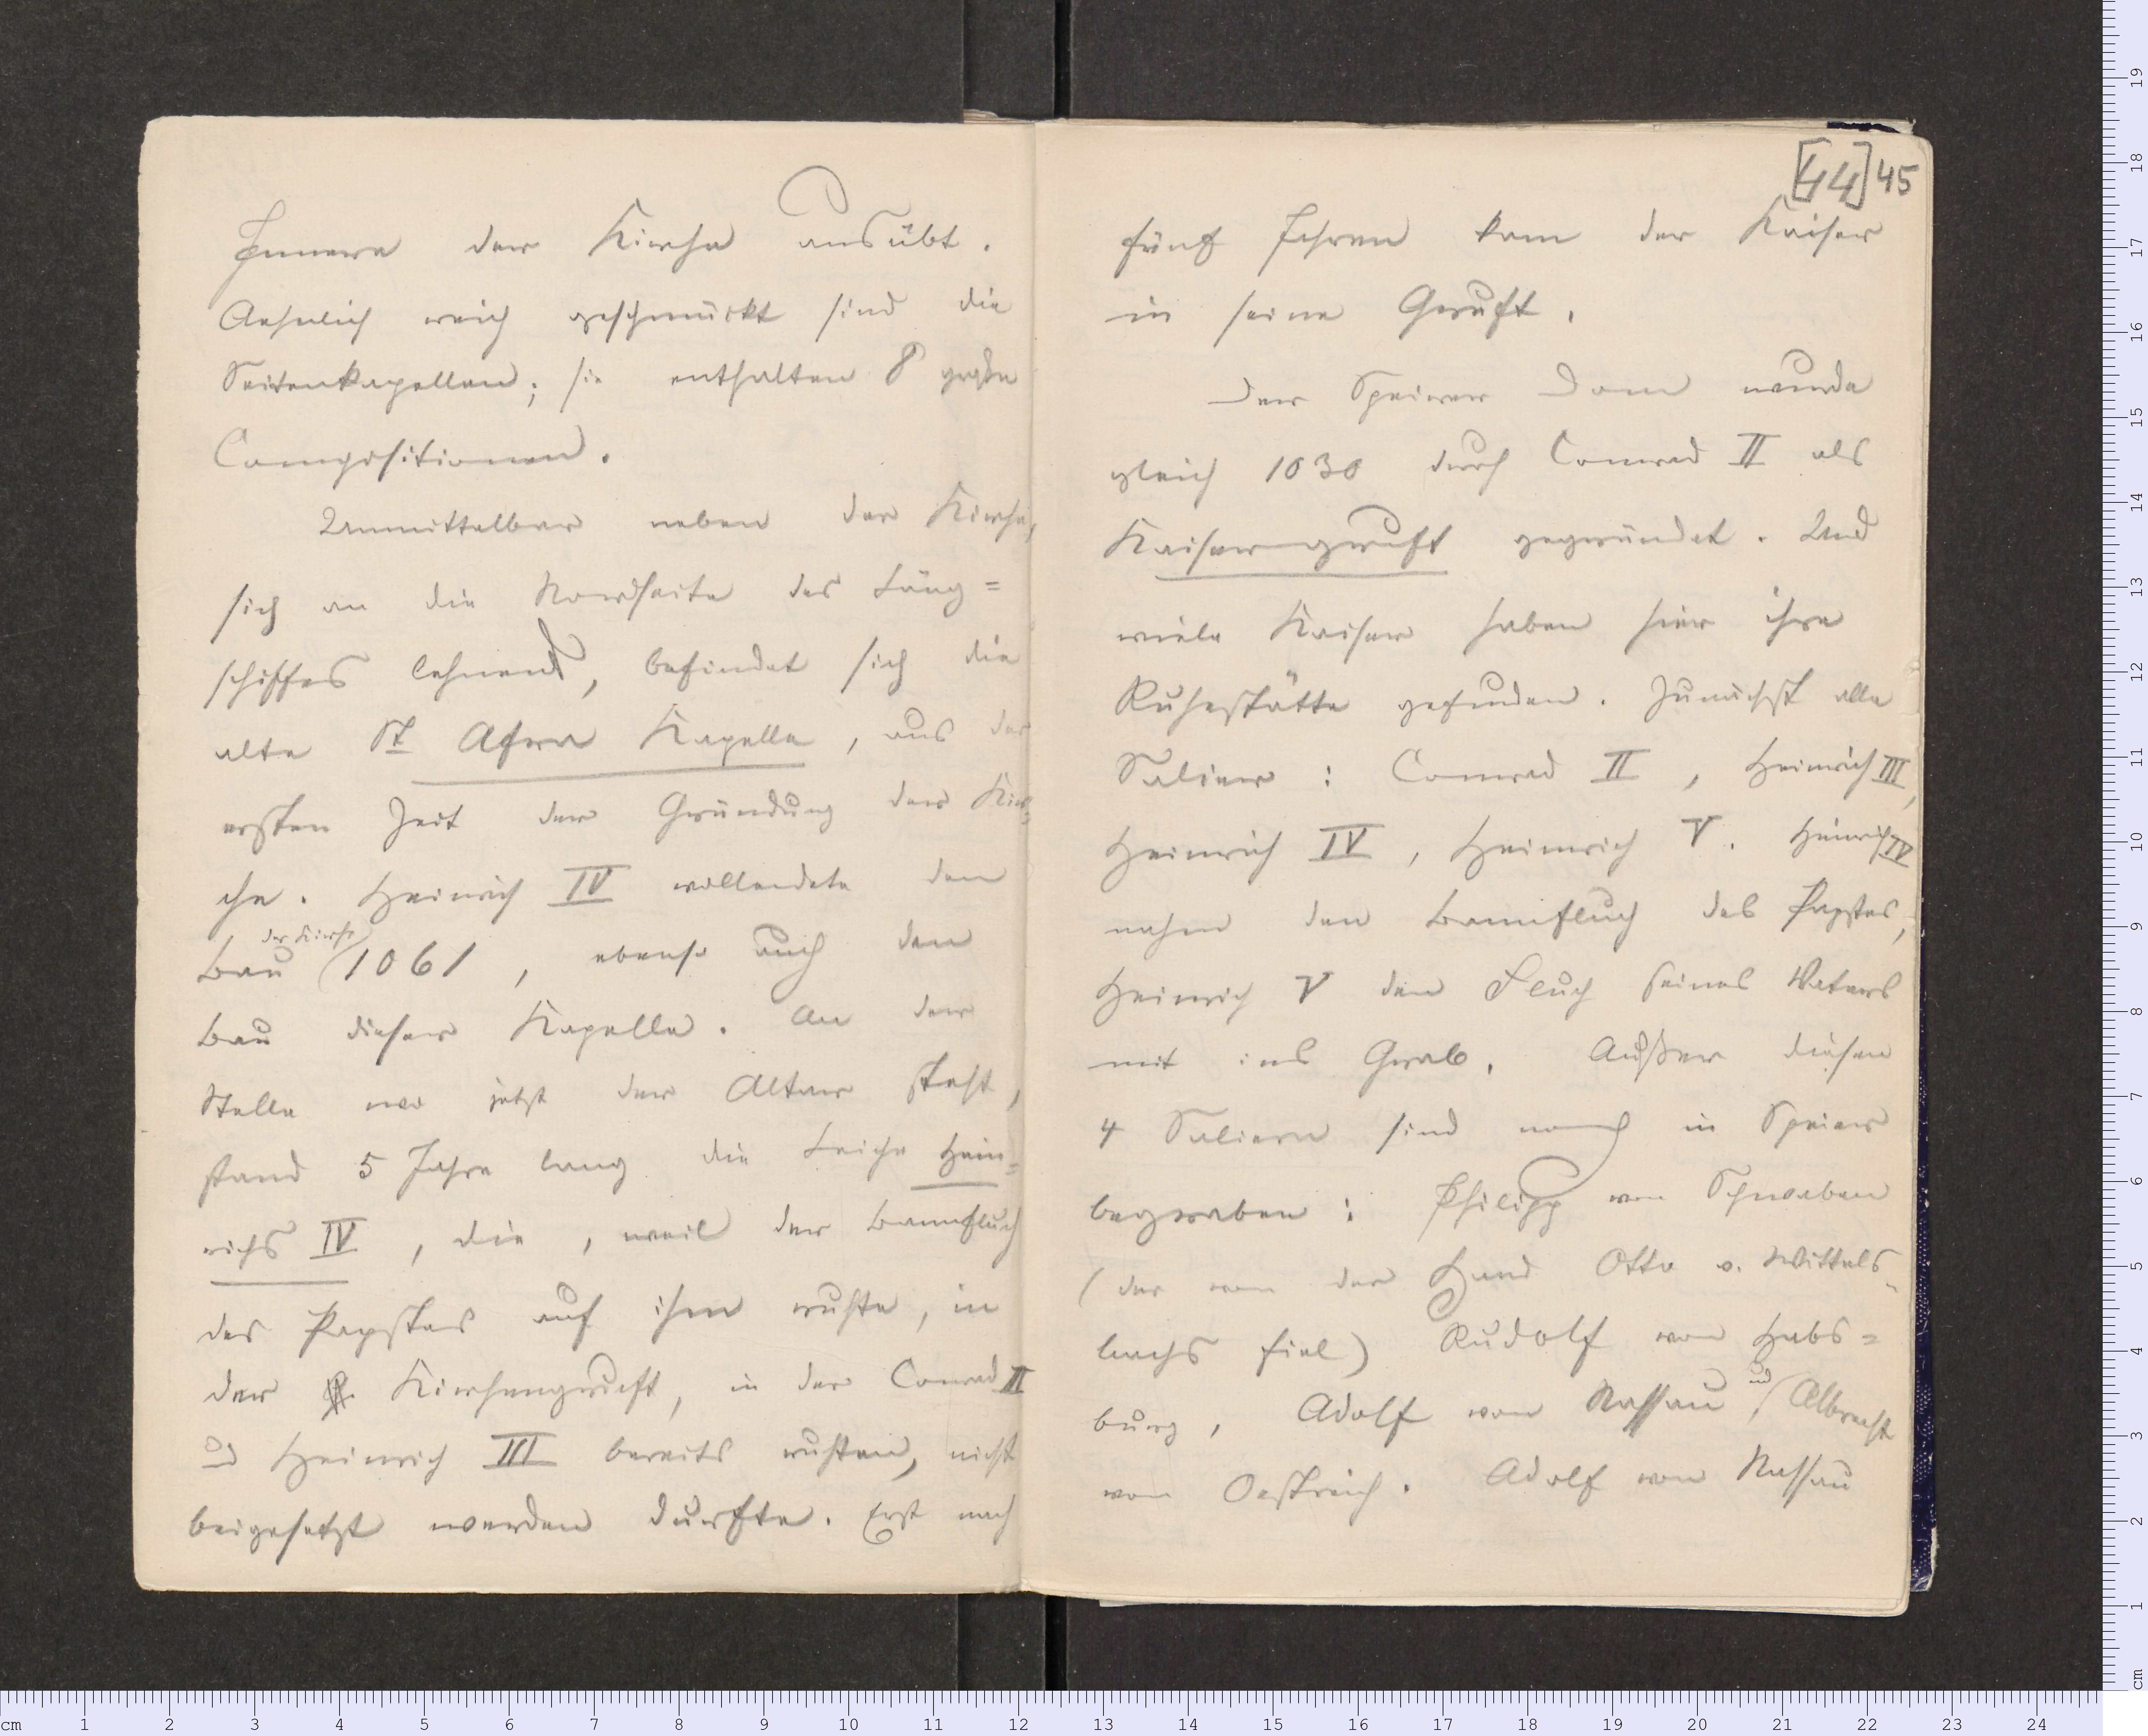 Innere der Kirche ausübt.
Aehnlich reich geschmückt sind die
Seitenkapellen; sie enthalten 8 große
Compositionen.
Unmittelbar neben der Kirche,
sich an die Nordseite des Läng=
schiffes lehnend, befindet sich die
alte St Afra Kapelle, aus der
ersten Zeit der Gründung der Kir=
che. Heinrich IV vollendete den
der Kirche
Bau 1061, ebenso auch den
Bau dieser Kapelle. An der
Stelle wo jetzt der Altar steht,
stand 5 Jahre lang die Leiche Hein=
richs IV, die, weil der Bannfluch
des Papstes auf ihm ruhte, in
der Kirchengruft, in der Conrad II
und Heinrich III bereits ruhten, nicht
beigesetzt werden durfte. Erst nach
[44] 45
fünf Jahren kam der Kaiser
in seine Gruft.
Der Speirer Dom wurde
gleich 1030 durch Conrad II als
Kaisergruft gegründet. Und
viele Kaiser haben hier ihre
Ruhestätte gefunden. Zunächst alle
Salier: Conrad II, Heinrich III,
Heinrich IV, Heinrich V. Heinrich IV
nahm den Bannfluch des Papstes,
Heinrich V den Fluch seines Vaters
mit ins Grab. Außer diesen
4 Saliern sind noch in Speier
begraben: Philipp von Schwaben
(der von der Hand Otto v. Wittels-
bachs fiel) Rudolf von Habs=
burg, Adolf von Nassau, und Albrecht
von Oestreich. Adolf von Nassau